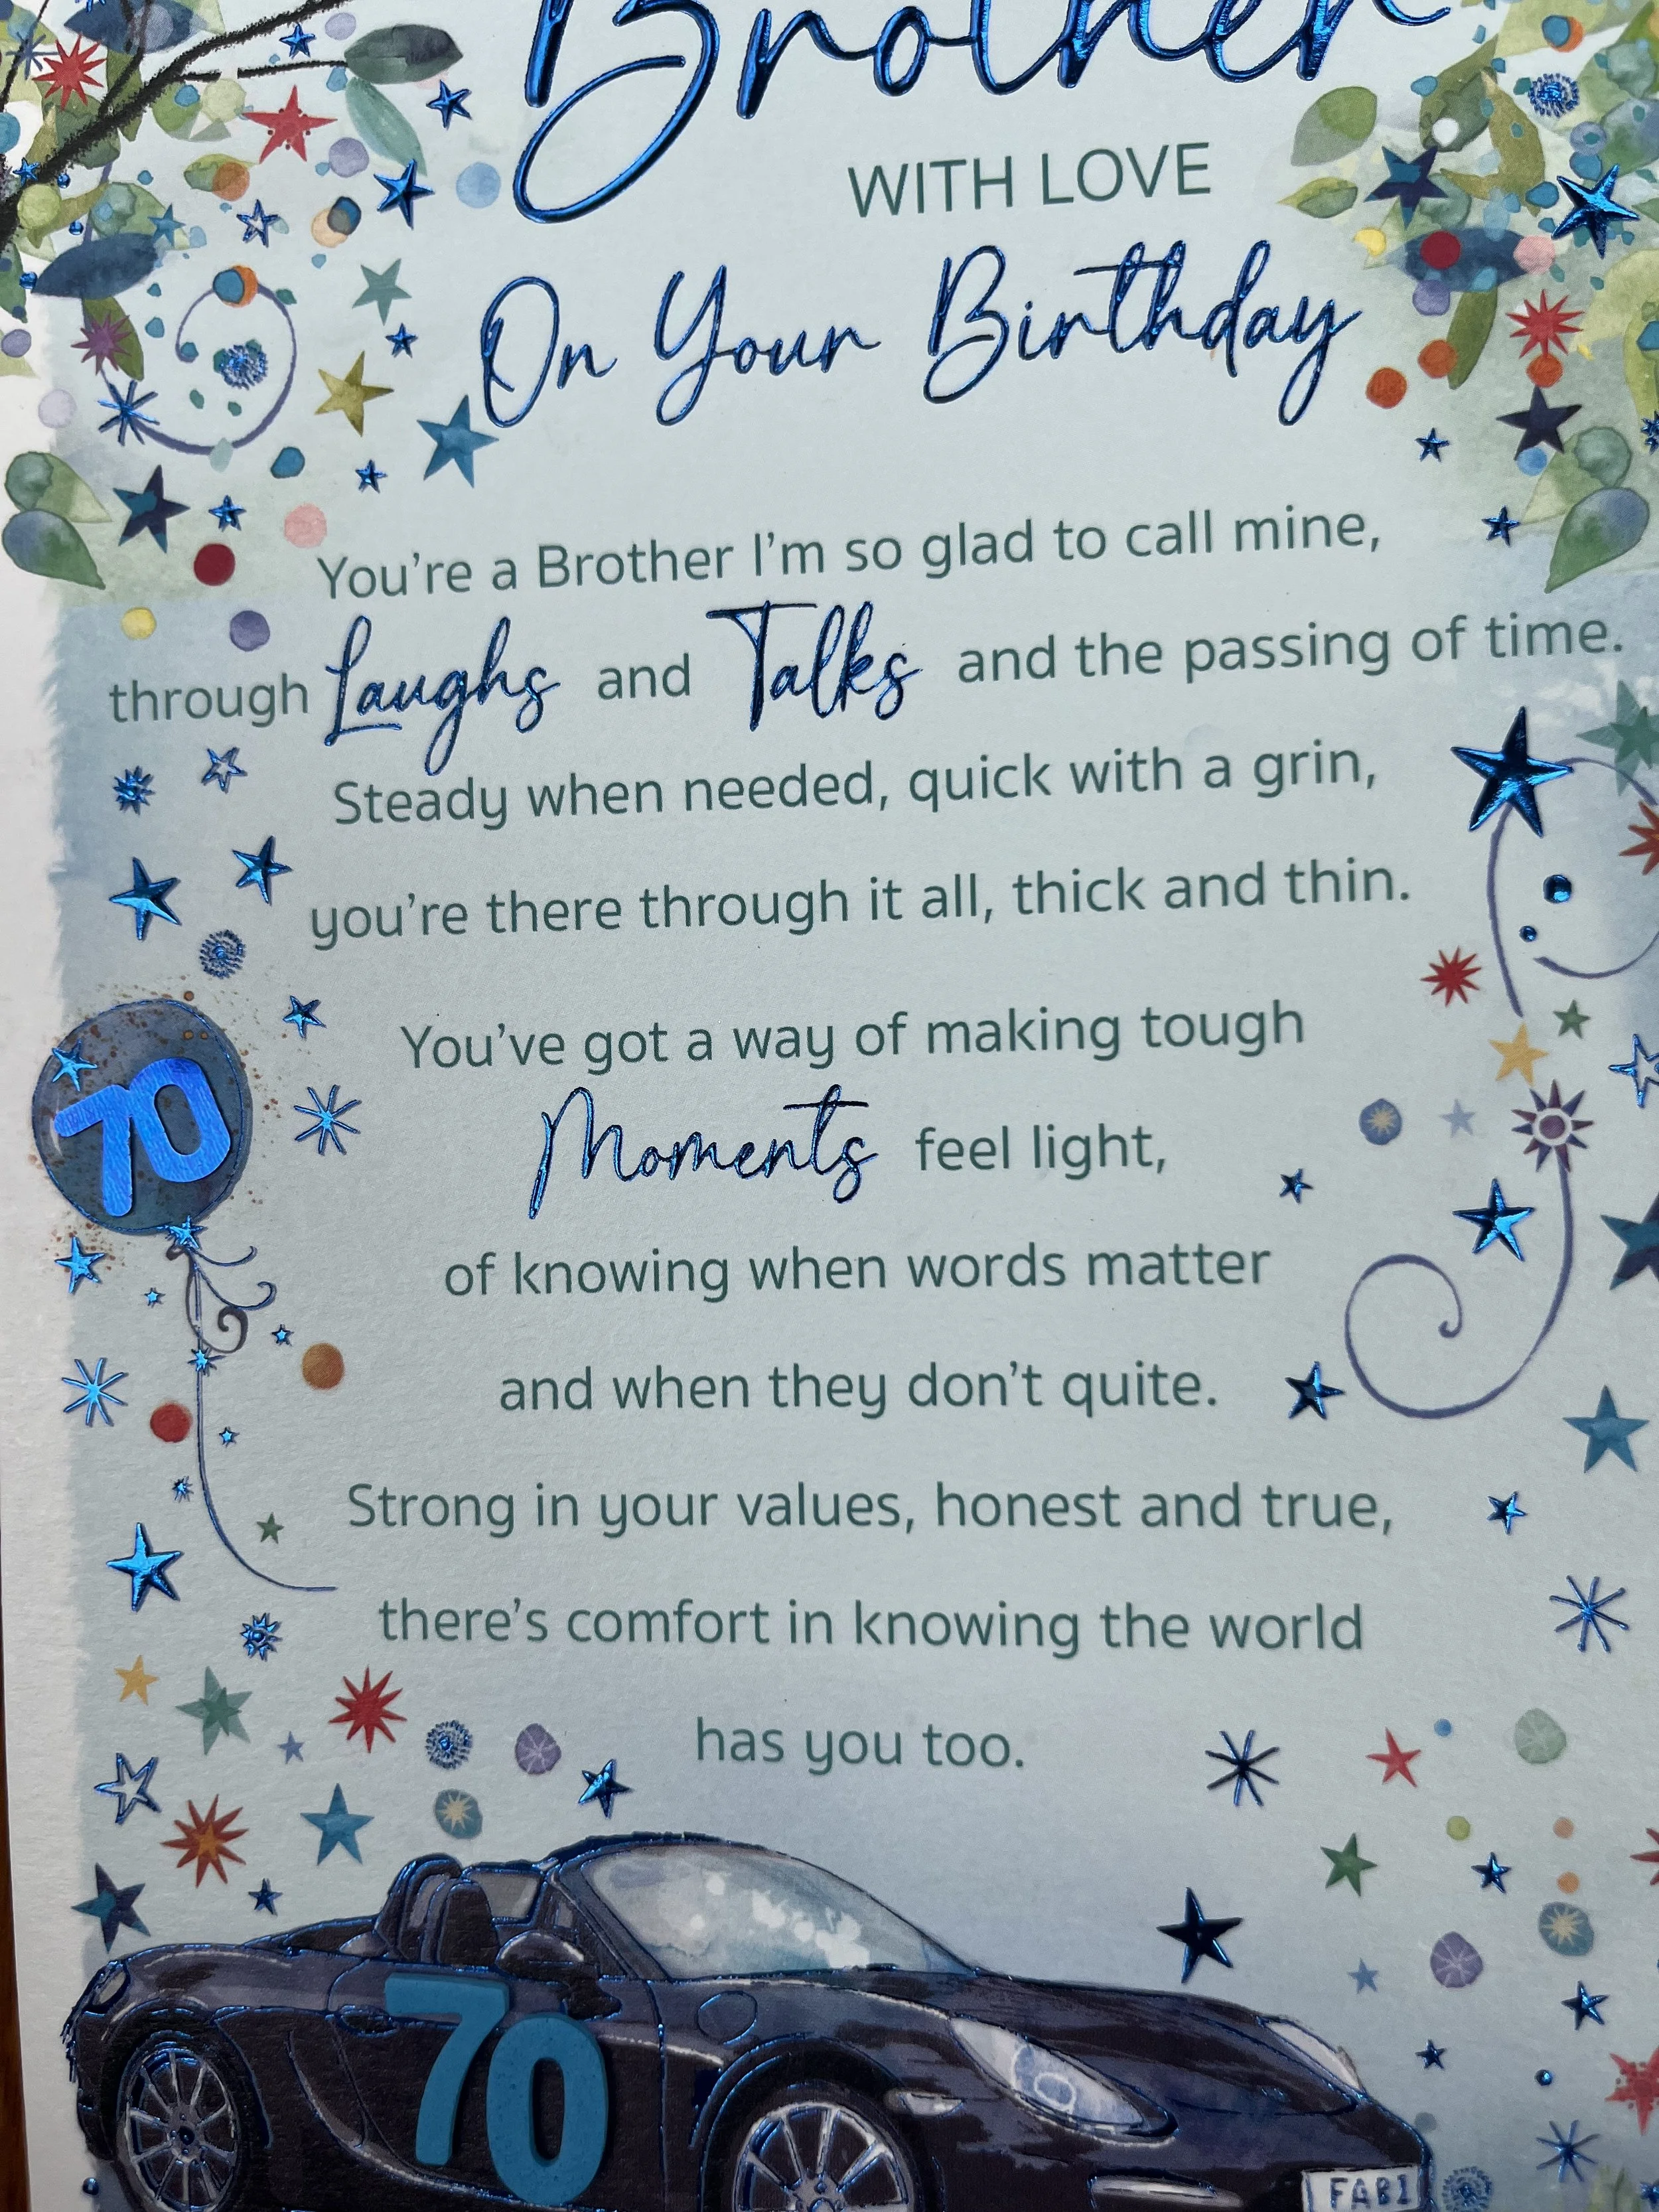 Brother
WITH LOVE
On Your Birthday
You're a Brother I'm so glad to call mine,
through Laughs and Talks and the passing of time.
Steady when needed, quick with a grin,
you're there through it all, thick and thin.
You've got a way of making tough
70
Moments feel light,
of knowing when words matter
and when they don't quite.
Strong in your values, honest and true,
there's comfort in knowing the world
has you too.
70
FAB1